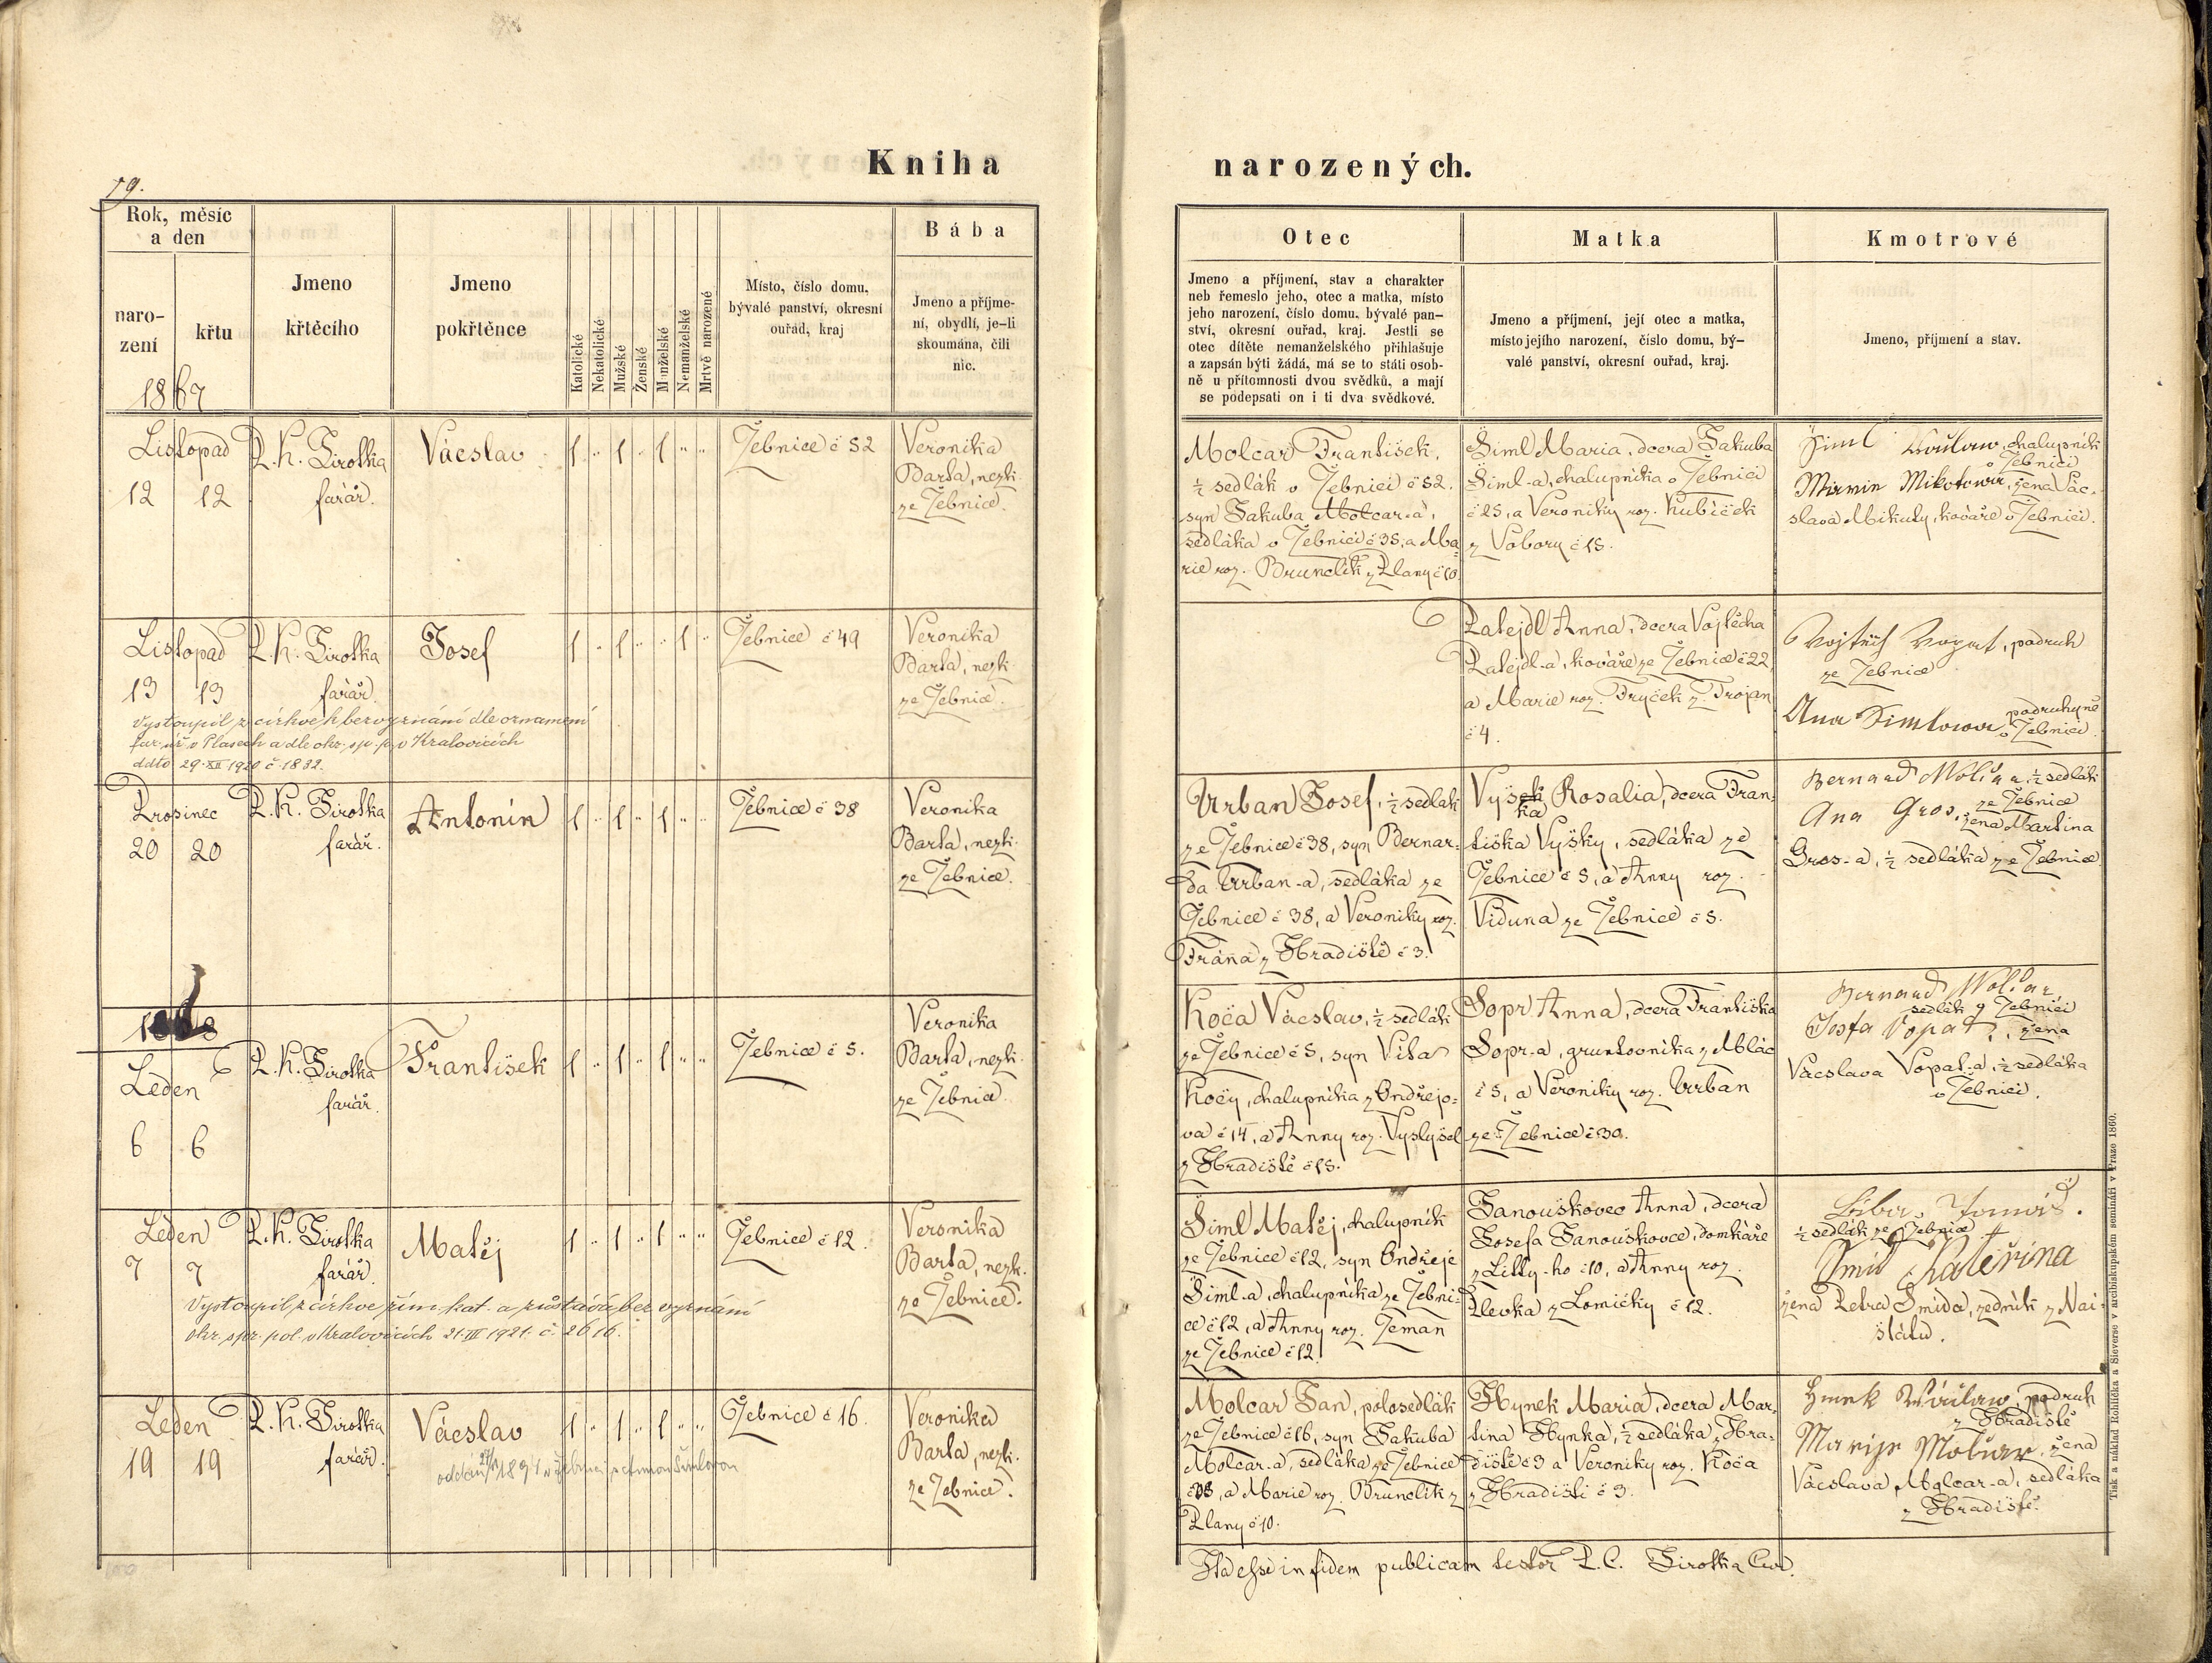 Kniha
narozených.
79.
Rok, měsíc
a den
naro-
zení
křtu
1867
Jmeno
křtěcího
Jmeno
pokřtěnce
Katolické
Nekatolické
Mužské
Ženské
Manželské
Nemanželské
Mrtvě narozené
Místo, číslo domu,
bývalé panství, okresní
ouřad, kraj
Bába
Jmeno a příjme-
ní, obydlí, je-li
skoumána, čili
nic.
Otec
Jmeno a příjmení, stav a charakter
neb řemeslo jeho, otec a matka, místo
jeho narození, číslo domu, bývalé pan-
ství, okresní ouřad, kraj. Jestli se
otec dítěte nemanželského přihlašuje
a zapsán býti žádá, má se to státi osob-
ně u přítomnosti dvou svědků, a mají
se podepsati on i ti dva svědkové.
Matka
Jmeno a příjmení, její otec a matka,
místo jejího narození, číslo domu, bý-
valé panství, okresní ouřad, kraj.
Kmotrové
Jmeno, příjmení a stav.
Listopad
12 12
P. K. Sirotka
farář.
Vácslav
1 " 1 " 1 " "
Žebnice č 52
Veronika
Barta, nezk.
ze Žebnice.
Molcar František,
½ sedlák v Žebnici č 52.
syn Jakuba Molcar-a,
sedláka v Žebnici č 35, a Ma-
rie roz. Brunclik z Plany č 10.
Šiml Maria, dcera Jakuba
Šiml-a, chalupníka v Žebnici
č 25, a Veroniky roz. Kubíček
z Vobory č 15.
Šiml Václaw, chalupník
v Žebnici
Mikotowa, žena Vác-
slava Mikuly, kováře v Žebnici.
Listopad
13 13
P. K. Sirotka
farář
Josef
1 " 1 " " 1 "
Žebnice č 49
Veronika
Barta, nezk.
ze Žebnice.
Vystoupil z církve k bezvyznání dle oznamení
far. úř. v Plasech a dle okr. sp. p. v Kralovicích
ddto 29. XII 1920 č. 1832.
Patejdl Anna, dcera Vojtěcha
Patejdl-a, kováře ze Žebnice č 22,
a Marie roz. Fryček z Trojan
č 4.
Vojtěch Vopat, podruh
ze Žebnice
Ana Simlowa, podruhyně
v Žebnici.
Prosinec
20 20
P. K. Sirotka
farář.
Antonín
1 " 1 " 1 " "
Žebnice č 38
Veronika
Barta, nezk.
ze Žebnice.
Urban Josef, ½ sedlák
ze Žebnice č 38, syn Bernar-
da Urban-a, sedláka ze
Žebnice č 38, a Veroniky roz.
Frána z Hradiště č 3.
Vyšek Rosalia, dcera Fran-
ka
tiška Vyšky, sedláka ze
Žebnice č 5, a Anny roz.
Viduna ze Žebnice č 5.
Bernard Molcar, ½ sedlák
ze Žebnice
Ana Gros, žena Martina
Gros-a, ½ sedláka ze Žebnice
1868
Leden
6 6
P. K. Sirotka
farář.
František
1 " 1 " 1 " "
Žebnice č 5.
Veronika
Barta, nezk.
ze Žebnice.
Koča Vácslav, ½ sedlák
ze Žebnice č 5, syn Vita
Kočy, chalupníka z Ondřejo-
va č 14, a Anny roz. Vyslyšel
z Hradiště č 15.
Sopr Anna, dcera Františka
Sopr-a, gruntovníka z Mlác
č 5, a Veroniky roz. Urban
ze Žebnice č 30.
Bernard Molcar,
sedlák z Žebnici
Josefa Vopat, žena
Vácslava Vopat-a, ½ sedláka
v Žebnici.
Leden
7 7
P. K. Sirotka
farář.
Matěj
1 " 1 " 1 " "
Žebnice č 12.
Veronika
Barta, nezk.
ze Žebnice.
Vystoupil z církve řím. kat. a zůstává bez vyznání
okr. spr. pol. v Kralovicích 21. III 1921. č. 2616.
Šiml Matěj, chalupník
ze Žebnice č 12, syn Ondřeje
Šiml-a, chalupníka ze Žebni-
ce č 12, a Anny roz. Zeman
ze Žebnice č 12.
Janouškovec Anna, dcera
Josefa Janouškovce, domkáře
z Litty-ho č 10, a Anny roz.
Plevka z Lomičky č 12.
Tomáš.
½ sedlák ze Žebnice
Šmid Kateřina
žena Petra Šmida, zedník z Nai-
štátu.
Leden
19 19
P. K. Sirotka
farář.
Vácslav
1 " 1 " 1 " "
Žebnice č 16.
Veronika
Barta, nezk.
ze Žebnice.
oddán 1894 v Žebnici s Annou Šimlovou
Molcar Jan, polosedlák
ze Žebnice č 16, syn Jakuba
Molcar-a, sedláka ze Žebnice
č 35, a Marie roz. Brunclik z
Plany č 10.
Hynek Maria, dcera Mar-
tina Hynka, ½ sedláka z Hra-
diště č 3 a Veroniky roz. Koča
z Hradiště č 3.
Hinek Václaw, podruh
z Hradiště
Marije Molcar, žena
Vácslava Molcar-a, sedláka
z Hradiště.
Ita esse in fidem publicam testor P. C. Sirotka Cur.
Tisk a náklad Rohlíčka a Sieverse v arcibiskupském semináři v Praze 1860.